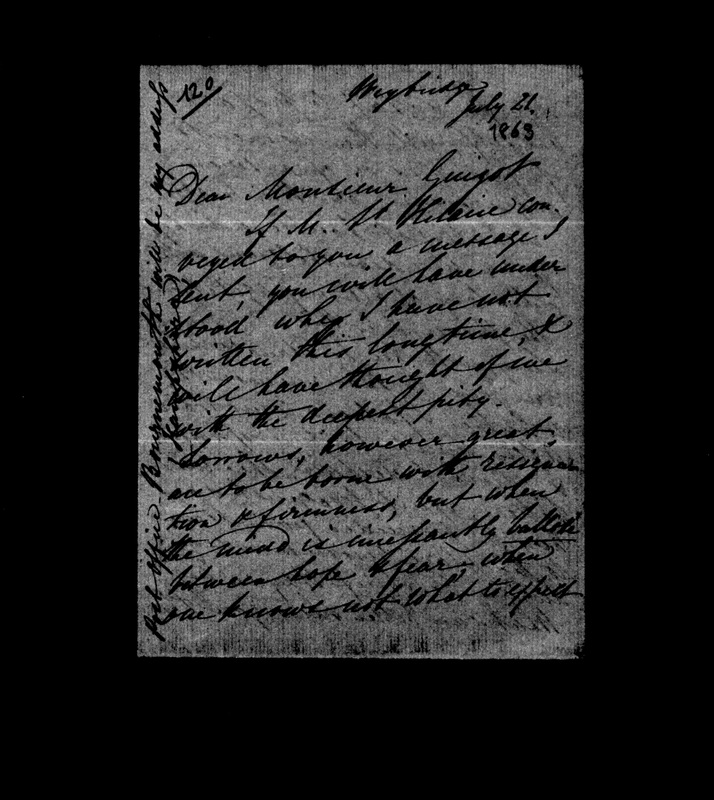 120
Weybridge
July 21.
1863
Dear Monsieur Guizot
If M. St Hilaire con-
veyed to you a message I
sent, you will have under
stood why I have not
written this long time, &
will have thought of me
with the deepest pity.
Sorrows, however great,
are to be borne with resigna
tion & firmness, but when
the mind is incessantly ballotté
between hope & fear, when
one knows not what to expect
Post Office Bournemouth will be my address